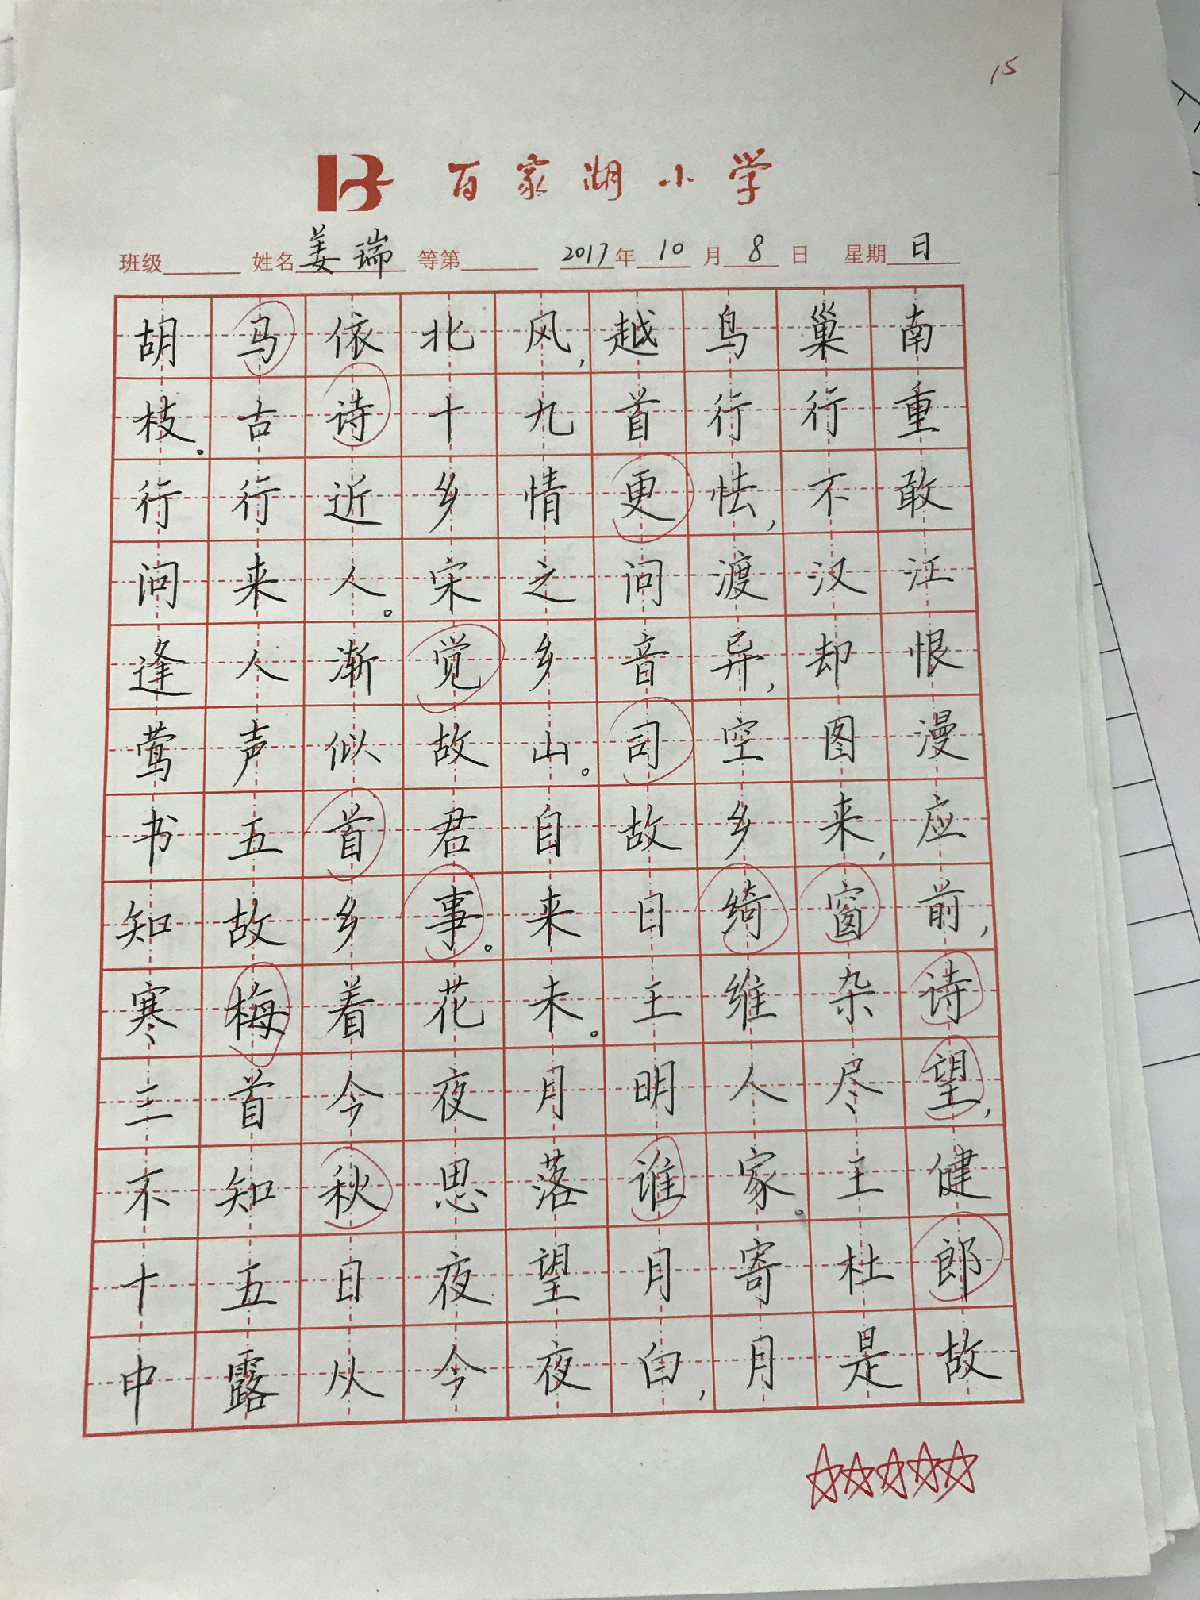 15
百家湖小学
班级 姓名 姜瑞 等第 2017年 10月 8日 星期 日
胡马依北风,越鸟巢南
枝。古诗十九首行行重
行行近乡情更怯,不敢
问来人。宋之问渡汉江
逢人渐觉乡音异,却恨
莺声似故山。司空图漫
书五首君自故乡来,应
知故乡事。来日绮窗前,
寒梅着花未。王维杂诗
三首今夜月明人尽望,
不知秋思落谁家。王健
十五日夜望月寄杜郎
中露从今夜白,月是故